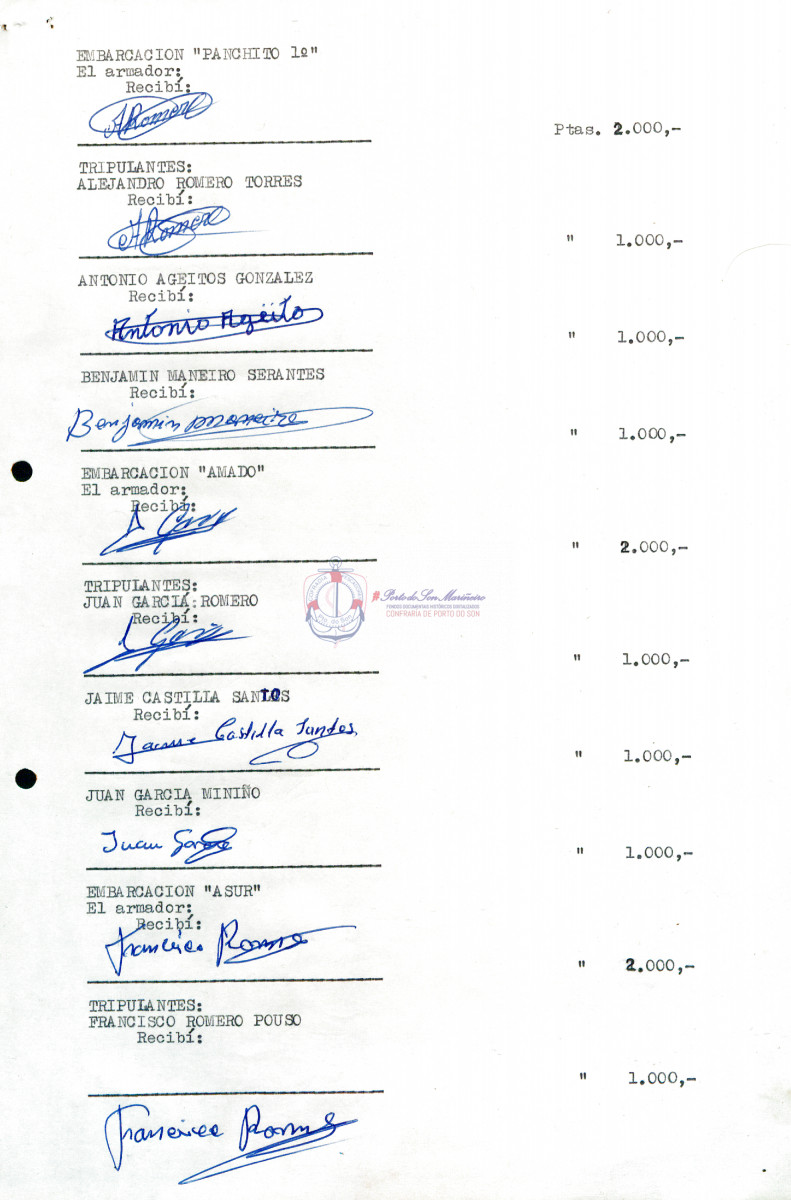 EMBARCACION "PANCHITO 1º"
El armador:
Recibí:
ARomero
Ptas. 2.000,-
TRIPULANTES:
ALEJANDRO ROMERO TORRES
Recibí:
ARomero
" 1.000,-
ANTONIO AGEITOS GONZALEZ
Recibí:
Antonio Ageito
" 1.000,-
BENJAMIN MANEIRO SERANTES
Recibí:
Benjamin Maneiro
" 1.000,-
EMBARCACION "AMADO"
El armador:
Recibí:
" 2.000,-
TRIPULANTES:
JUAN GARCIA ROMERO
Recibí:
" 1.000,-
Porto do Son Mariñeiro
FONDOS DOCUMENTAIS HISTÓRICOS DIGITALIZADOS
CONFRARÍA DE PORTO DO SON
JAIME CASTILLA SANTOS
Recibí:
Jaime Castilla Santos
" 1.000,-
JUAN GARCIA MINIÑO
Recibí:
Juan Garcia
" 1.000,-
EMBARCACION "ASUR"
El armador:
Recibí:
Francisco Romero
" 2.000,-
TRIPULANTES:
FRANCISCO ROMERO POUSO
Recibí:
" 1.000,-
Francisco Romero